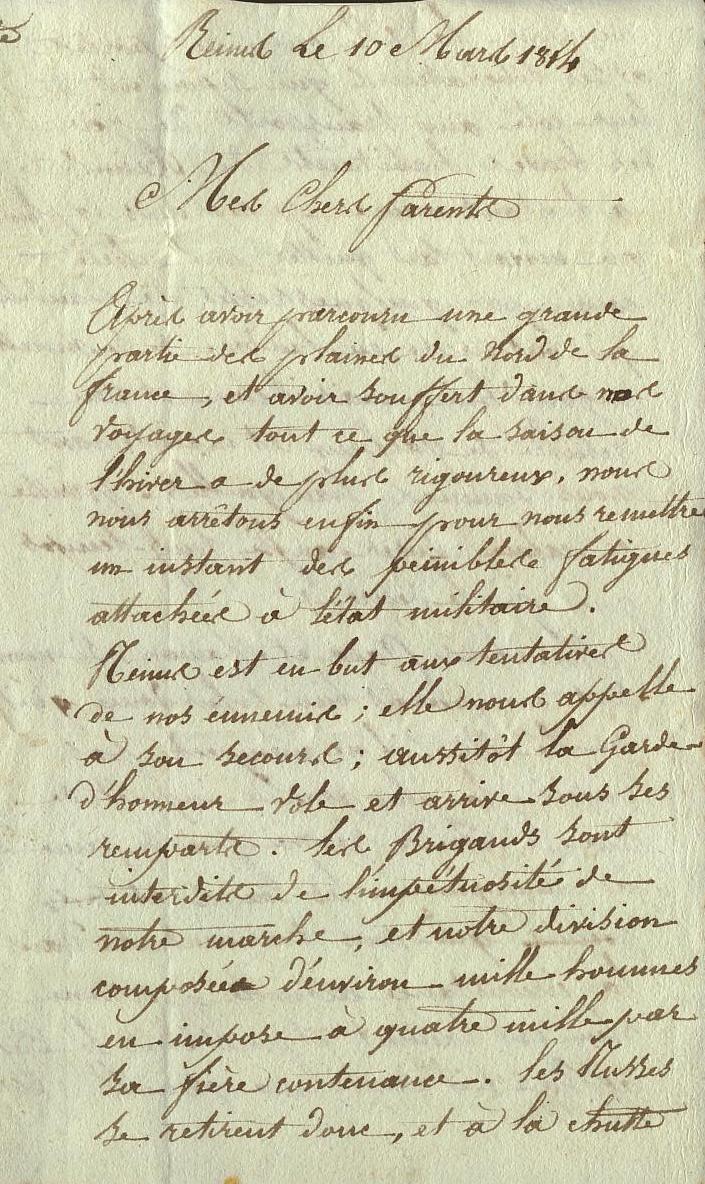 Reims Le 10 Mars 1814
Mes Chers Parents
Après avoir parcouru une grande
partie des plaines du Nord de la
france, et avoir souffert dans nos
voyages tout ce que la saison de
l'hiver a de plus rigoureux, nous
nous arrêtons enfin pour nous remettre
un instant des peinibles fatigues
attachées à l'état militaire.
Reims est en but aux tentatives
de nos énnemis ; elle nous appelle
à son secours ; aussitôt la Garde
d'honneur vole et arrive sous ses
remparts. les Brigands sont
interdits de l'impétuosité de
notre marche, et notre division
composée d'énviron mille hommes
en impose à quatre mille par
sa fière contenance. les Russes
se retirent donc, et à la chutte